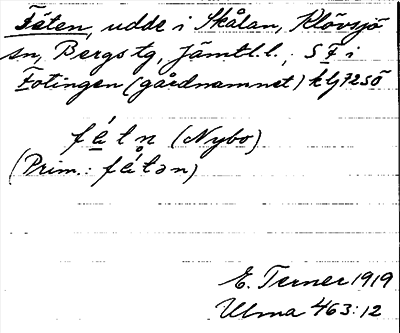 Fåten, udde i Skålan, Klövsjö
sn, Bergs tg, Jämtl. l.; S F i
Fotingen (gårdnamnet) kbl 72 SÖ
fát n̥ (Nybo)
(Prim.: fátən)
E. Terner 1919
Ulma 463:12